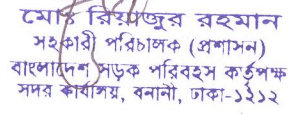 মোঃ রিয়াজুর রহমান
সহকারী পরিচালক (প্রশাসন)
বাংলাদেশ সড়ক পরিবহন কর্তৃপক্ষ
সদর কার্যালয়, বনানী, ঢাকা-১২১২